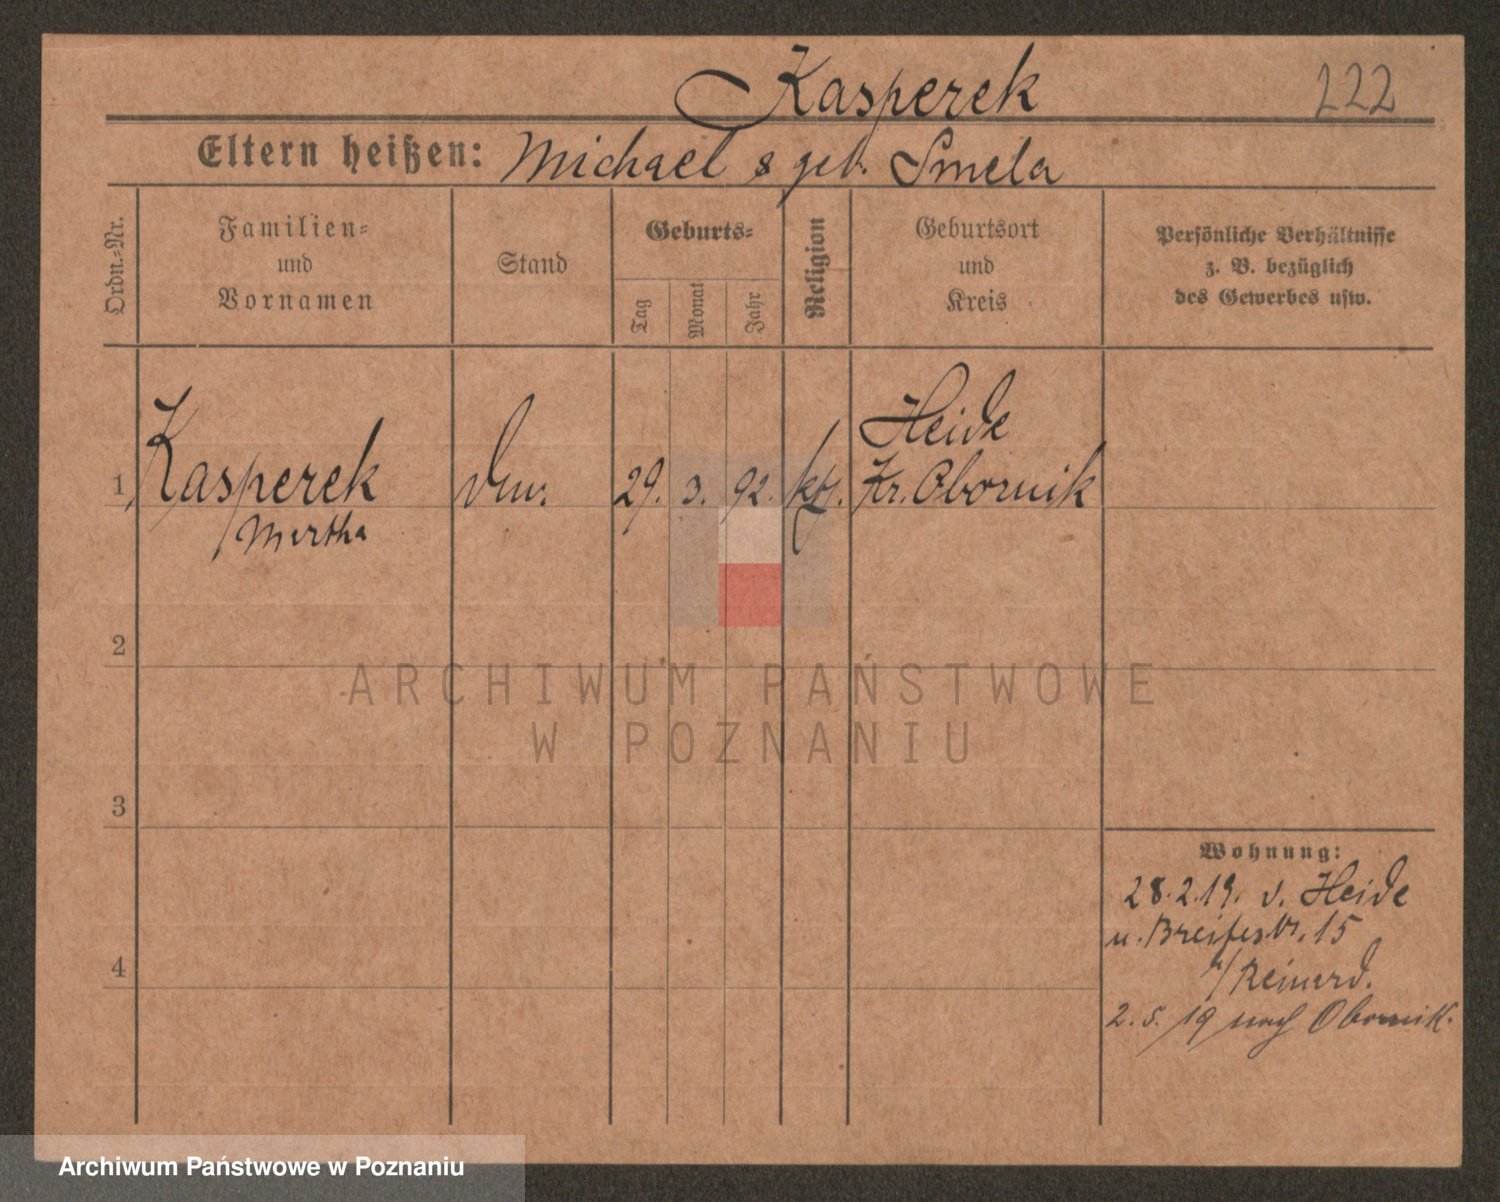 Kasperek 222
Eltern heißen: Michael & geb. Smela
Ordn.=Nr.
Familien=
und
Vornamen
Stand
Geburts=
Tag
Monat
Jahr
Religion
Geburtsort
und
Kreis
Persönliche Verhältnisse
z. B. bezüglich
des Gewerbes usw.
Heide
1 Kasperek 29. 3. 92. kth. Kr. Obornik
Martha
2
3
4
Wohnung:
28.2.19. v. Heide
15
2.5.19 nach Obornik.
ARCHIWUM PAŃSTWOWE
W POZNANIU
Archiwum Państwowe w Poznaniu